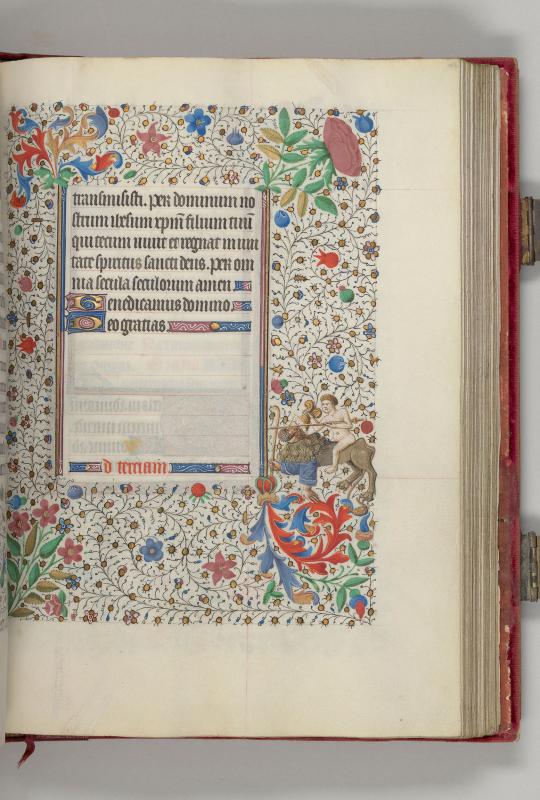 transmisisti. Per dominum no
strum ihesum xpm̄ filium tuū
qui tecum uiuit et regnat in uni
tate spiritus sancti deus. Per om
nia secula seculorum amen
Benedicamus domino
Deo gratias
d terciam